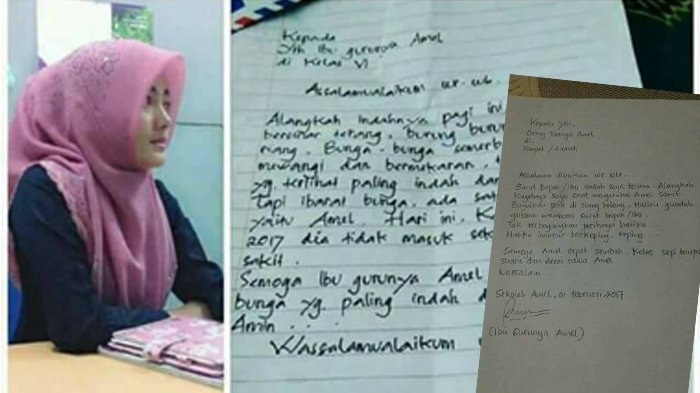 Kepada
Yth Ibu gurunya Amel
di Kelas VI
Assalamualaikum wr. wb.
Alangkah indahnya pagi ini
bersinar terang, burung buru
riang. Bunga-bunga semerb
mewangi dan bermekaran,
yg. terlihat paling indah dan
Tapi ibarat bunga, ada sat
yaitu Amel Hari ini, K
2017 dia tidak masuk sek
sakit.
Semoga Ibu gurunya Amel
bunga yg. paling indah d
Amin ...
Wassalamualaikum
Kepada Yth.
Orang Tuanya Amel
di
Tempat / Rumah
Assalamu Alaikum wr wbr.
Surat Bapak / Ibu sudah saya terima. Alangkah
kagetnya saya saat mengetahui Amel sakit.
Bagaikan petir di siang bolong, Hatiku gundah
gulana membaca surat bapak/ibu.
Tak terbayangkan perihnya hatiku ...
Hatiku hancur berkeping-keping ...
Semoga Amel cepat sembuh. Kelas sepi tanpa
suara dan derai tawa Amel.
Wassalam
Sekolah Amel, 01 Februari 2017
(Ibu Gurunya Amel)